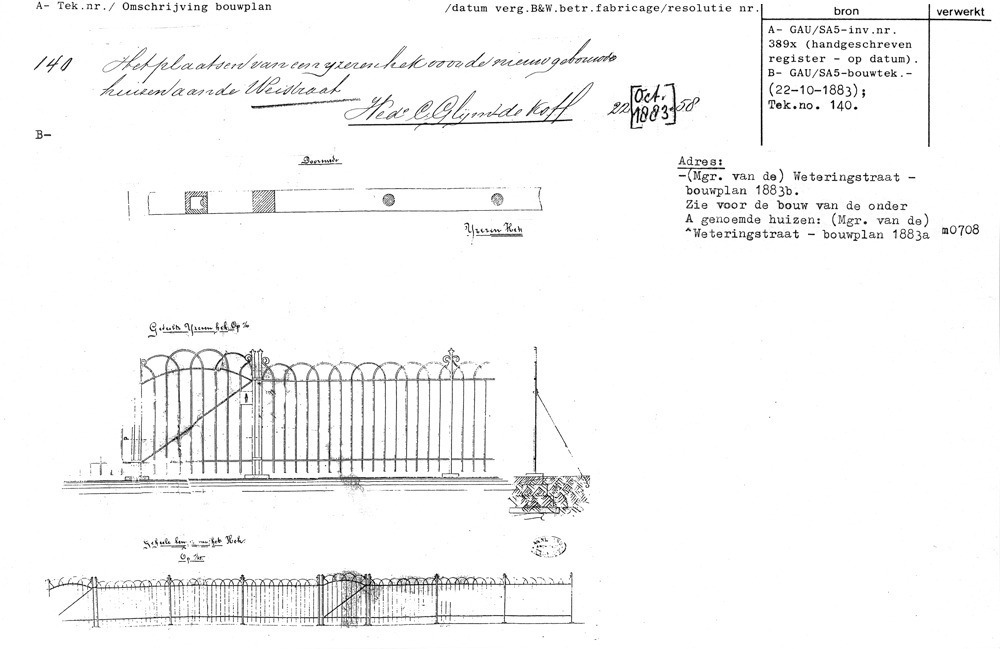 A- Tek.nr./ Omschrijving bouwplan
/datum verg.B&W.betr.fabricage/resolutie nr.
bron
verwerkt
140 Het plaatsen van een yzeren hek voor de nieuw gebouwde
huizen aan de Weistraat
22 [Oct. 1883.] 58
A- GAU/SA5-inv.nr.
389x (handgeschreven
register - op datum).
B- GAU/SA5-bouwtek.-
(22-10-1883);
Tek.no. 140.
B-
Doorsnede
Yzeren Hek
Adres:
-(Mgr. van de) Weteringstraat -
bouwplan 1883b.
Zie voor de bouw van de onder
A genoemde huizen: (Mgr. van de)
^Weteringstraat - bouwplan 1883a m0708
Yzeren hek. Op
Hek.
Op